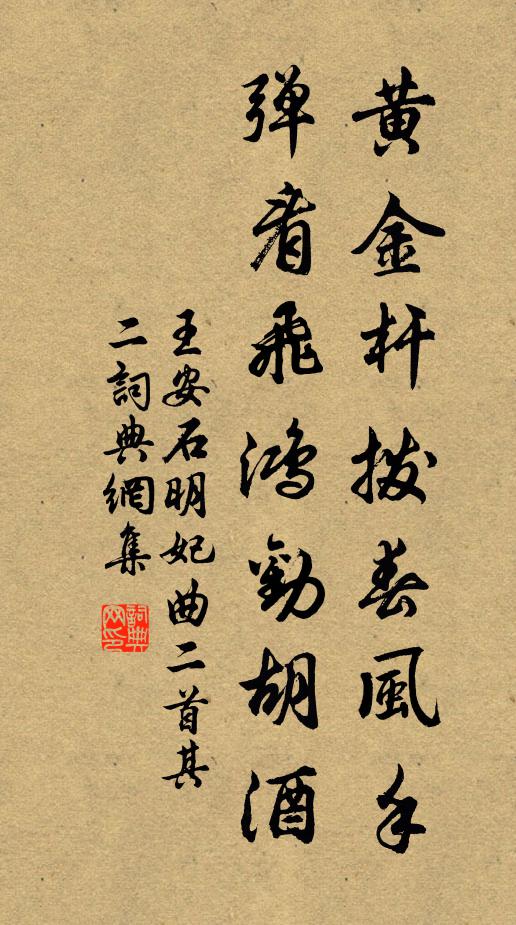 黄金杆撥春風手
弹看飛鴻勸胡酒
王安石明妃曲二首其
二詞典網集
詞典
网印